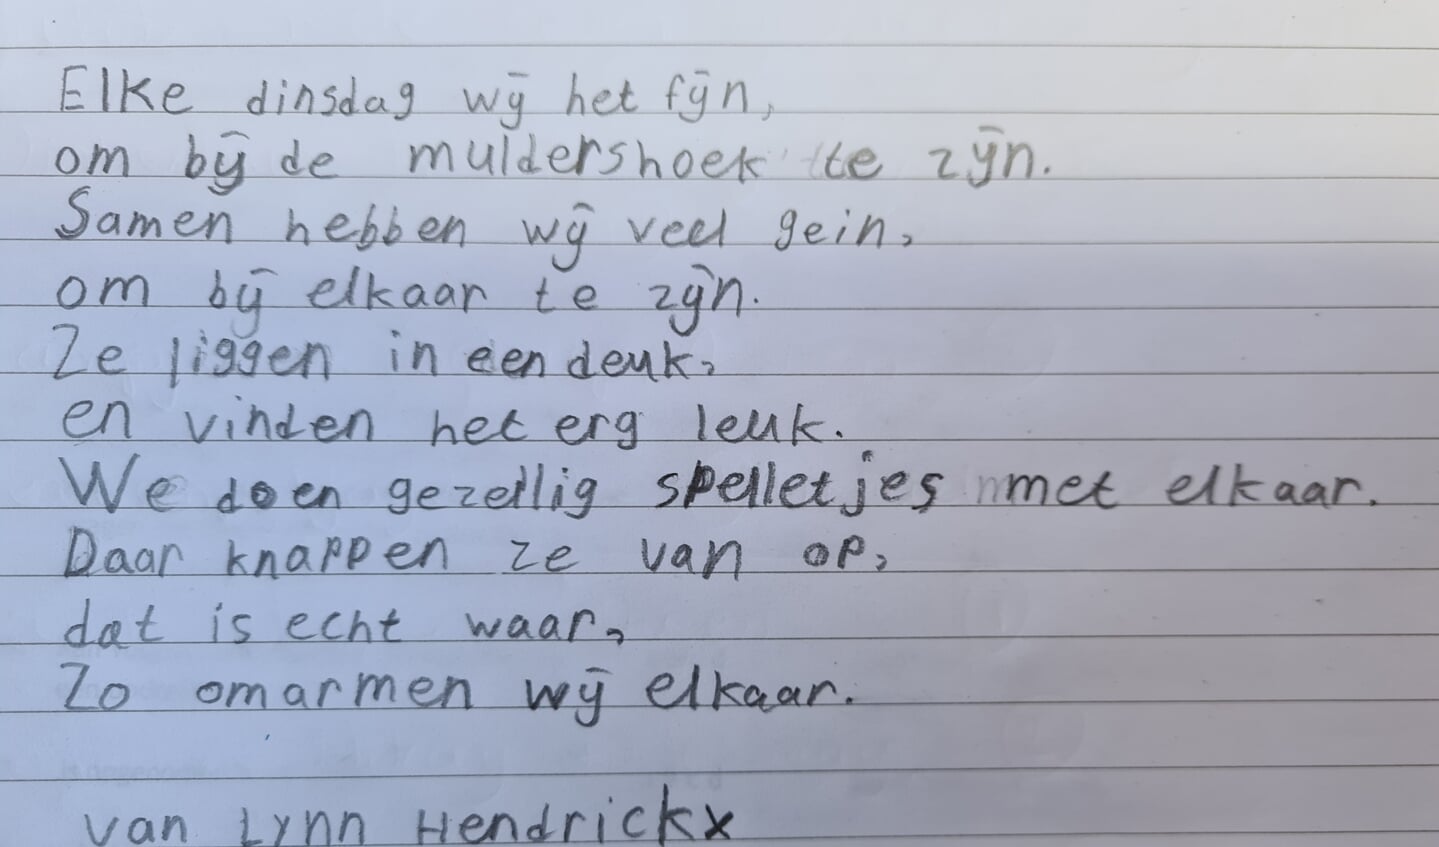 Elke dinsdag wij het fijn,
om bij de muldershoek te zijn.
Samen hebben wij veel gein,
om bij elkaar te zijn.
Ze liggen in een deuk,
en vinden het erg leuk.
We doen gezellig spelletjes met elkaar.
Daar knappen ze van op,
dat is echt waar,
Zo omarmen wij elkaar.
van Lynn Hendrickx